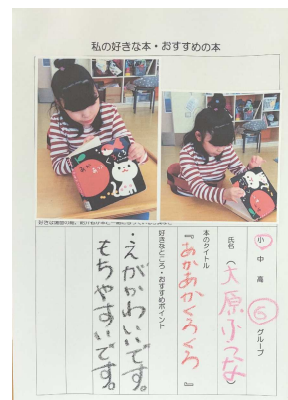 私の好きな本・おすすめの本
小 中 高 6 グループ
氏名(大原
本のタイトル
あかあかくろくろ
好きなところ・おすすめポイント
・えがかわいいです。
もちやすいです。